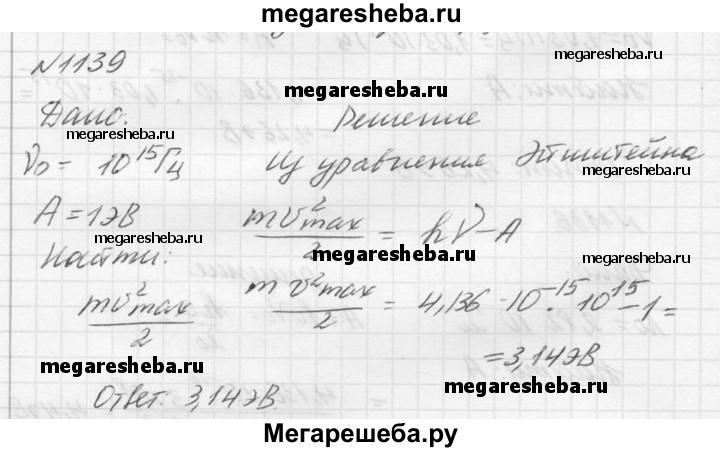 megaresheba.ru
№1139
megaresheba.ru
megaresheba.ru
megaresheba.ru
Дано:
Решение
megaresheba.ru
ν₀ = 10¹⁵ Гц
Из уравнения Эйнштейна
megaresheba.ru
A = 1 эВ
mv²max/2 = hν - A
megaresheba.ru
megaresheba.ru
Найти:
mv²max/2
mv²max/2 = 4,136 · 10⁻¹⁵ · 10¹⁵ - 1 =
= 3,14 эВ
megaresheba.ru
megaresheba.ru
Ответ: 3,14 эВ.
Мегарешеба.ру